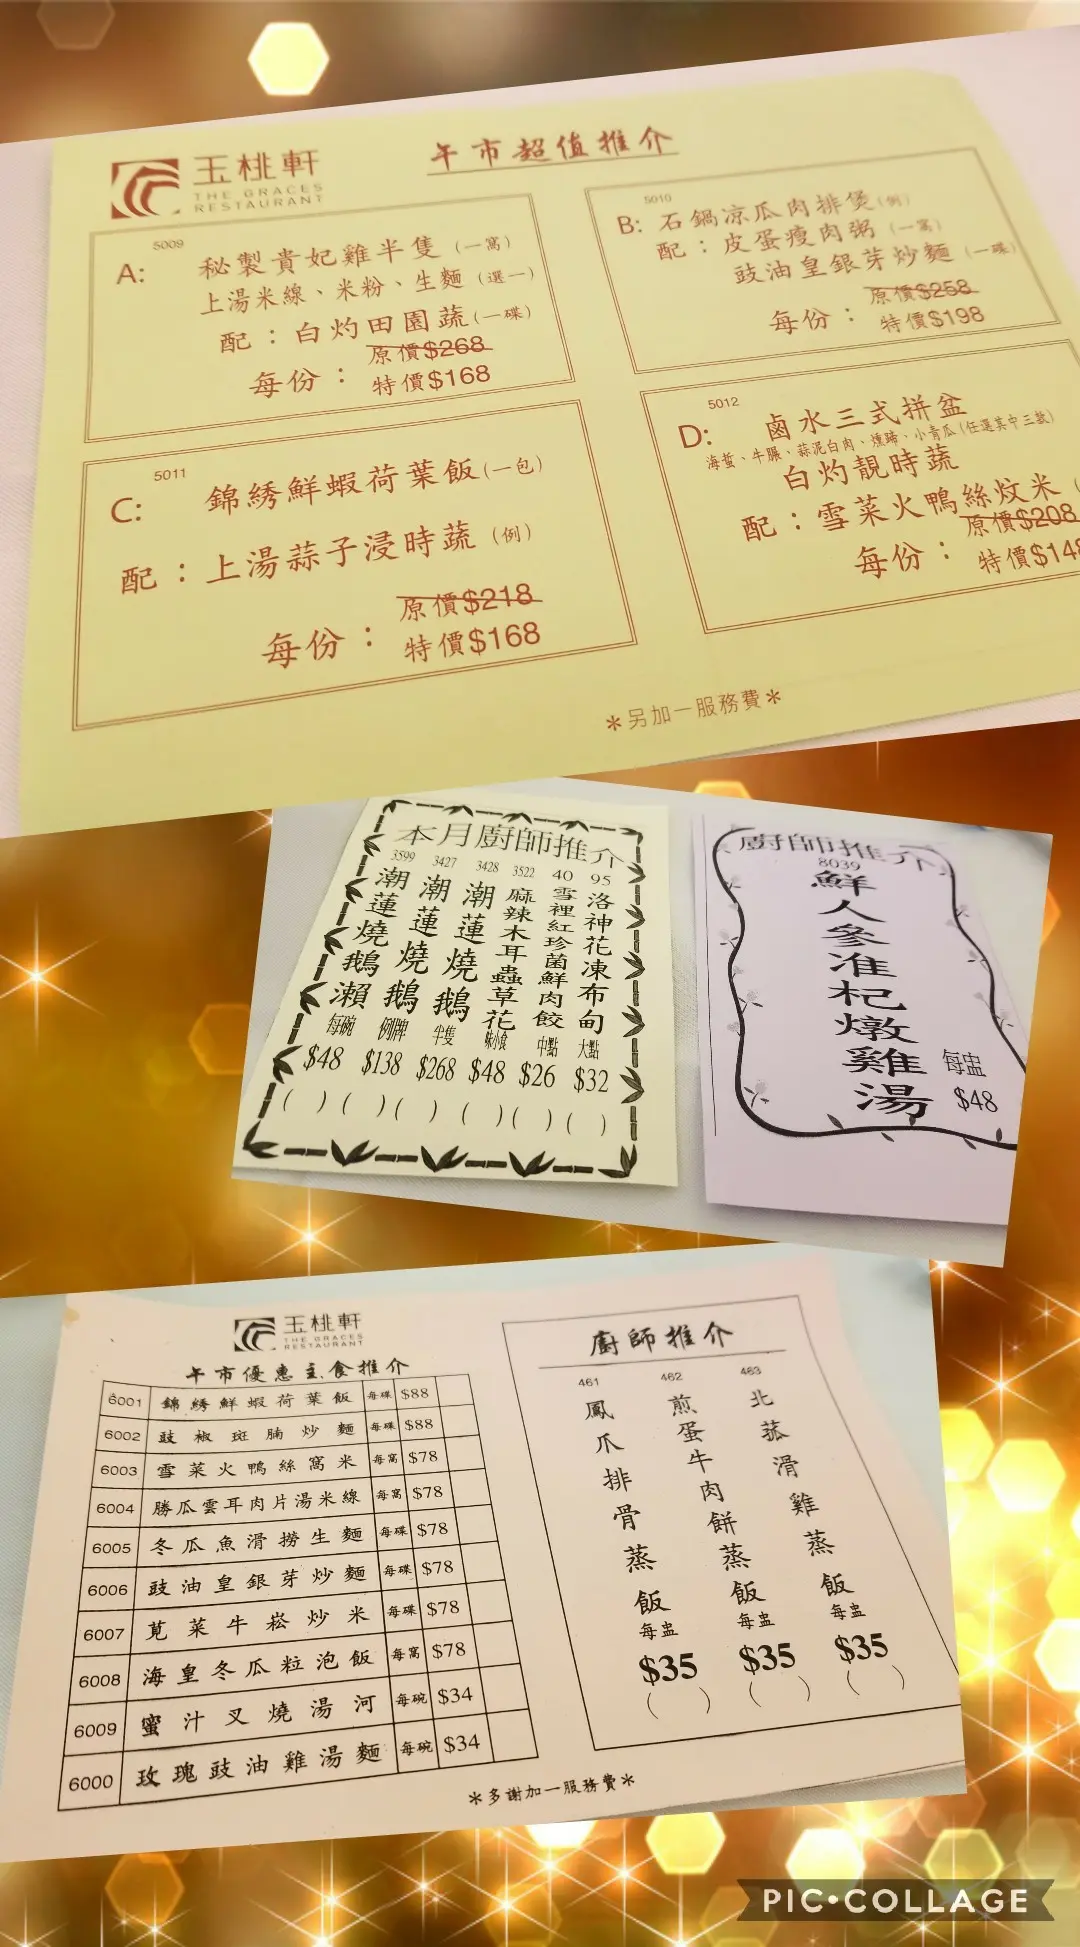 玉桃軒
THE GRACES
RESTAURANT
午市超值推介
5009
A: 秘製貴妃雞半隻(一窩)
上湯米線、米粉、生麵(選一)
配：白灼田園蔬(一碟)
原價$268
每份：特價$168
5010
B: 石鍋凉瓜肉排煲(例)
配：皮蛋瘦肉粥(一窩)
豉油皇銀芽炒麵(一碟)
原價$258
每份：特價$198
5011
C: 錦綉鮮蝦荷葉飯(一包)
配：上湯蒜子浸時蔬(例)
原價$218
每份：特價$168
5012
D: 鹵水三式拼盆
海蜇、牛𦟌、蒜泥白肉、燻蹄、小青瓜(任選其中三款)
白灼靚時蔬
配：雪菜火鴨絲炆米
原價$208
每份：特價$148
*另加一服務費*
本月廚師推介
3599
潮蓮燒鵝瀨
每碗
$48
3427
潮蓮燒鵝
例牌
$138
3428
潮蓮燒鵝
半隻
$268
3522
麻辣木耳蟲草花
$48
40
雪裡紅珍菌鮮肉餃
中點
$26
95
洛神花凍布甸
大點
$32
( ) ( ) ( ) ( ) ( ) ( )
廚師推介
8039
鮮人參淮杞燉雞湯
每盅
$48
玉桃軒
THE GRACES
RESTAURANT
午市優惠主食推介
6001 錦綉鮮蝦荷葉飯 每碟 $88
6002 豉椒斑腩炒麵 每碟 $88
6003 雪菜火鴨絲窩米 每窩 $78
6004 勝瓜雲耳肉片湯米線 每窩 $78
6005 冬瓜魚滑撈生麵 每碟 $78
6006 豉油皇銀芽炒麵 每碟 $78
6007 莧菜牛崧炒米 每碟 $78
6008 海皇冬瓜粒泡飯 每窩 $78
6009 蜜汁叉燒湯河 每碗 $34
6000 玫瑰豉油雞湯麵 每碗 $34
廚師推介
461
鳳爪排骨蒸飯
每盅
$35
( )
462
煎蛋牛肉餅蒸飯
每盅
$35
( )
463
北菰滑雞蒸飯
每盅
$35
( )
*多謝加一服務費*
PIC•COLLAGE